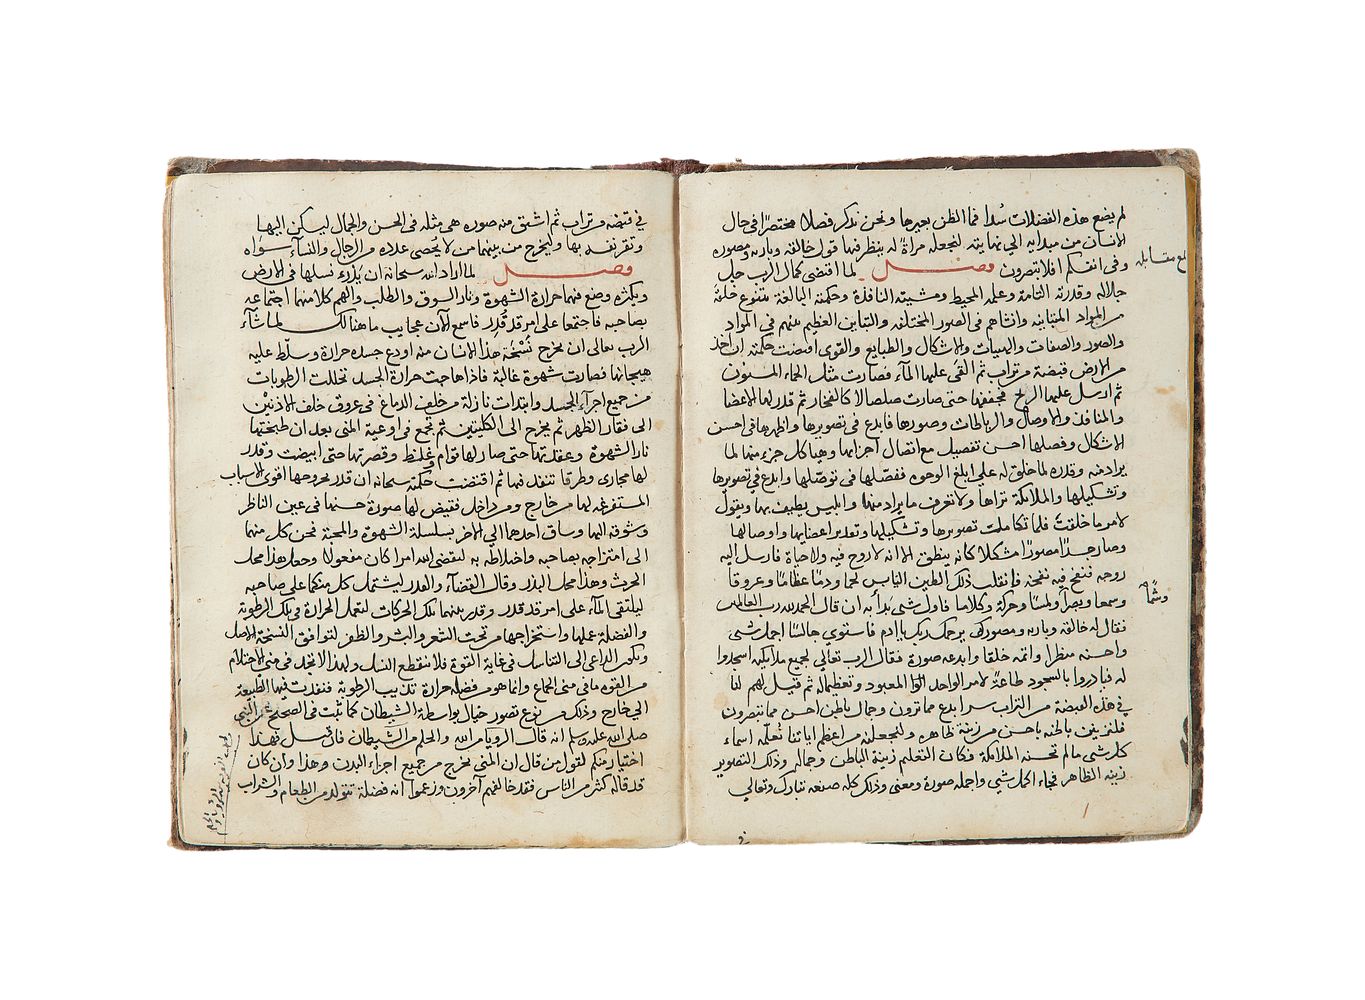 لم يضع هذه الفضلات سُدا فما الظن بغيرها ونحن نذكر فصلا مختصرًا في حال
الانسان من مبدايه الي نهايته لنجعله مرآةً له ينظر فيها قول خالقه وباريه ومصوره
وفي انفسكم افلا تبصرون فصل لما اقتضى كمال الرب جل
بلغ مقابله
جلاله وقدرته التامة وعلمه المحيط ومشيته النافذة وحكمته البالغة تنويع خلقه
من المواد المتباينه وانشاهم في الصور المختلفه والتباين العظيم بينهم في المواد
والصور والصفات والهيات والاشكال والطبايع والقوى اقتضت حكمته ان اخذ
من الارض قبضة من تراب ثم القى عليها الماء فصارت مثل الحماء المسنون
ثم ارسل عليها الريح فجففها حتى صارت صلصالا كالفخار ثم قدر لها الاعضا
والمنافذ والاوصال والرباطات وصورها فابدع في تصويرها واظهرها في احسن
الاشكال وفصلها احسن تفصيل مع اتصال اجزايها وهيا كل جزء منها لما
يراد منه وقدره لما خلق له علي ابلغ الوجوه ففصلها في توصلها وابدع في تصويرها
وتشكيلها والملائكة تراها ولا تعرف ما يراد منها وابليس يطيف بها ويقول
لامر ما خلقت فلما تكامل تصويرها وتشكيلها وتقدير اعضايها واوصالها
وصار جسدًا مصورًا مشكلا كانه ينطق الا انه لا روح فيه ولا حياة فارسل اليه
روحه فنفخ فيه نفخة فانقلب ذلك الطين اليابس لحما ودمًا عظامًا وعروقًا
وسمعا وبصرا ولمسًا وحركة وكلاما فاول شي بَدأ به ان قال الحمد لله رب العالمين
وشمًا
فقال له خالقه وباريه ومصوره يرحمك ربك يا ادم فاستوي جالسًا اجمل شي
واحسنه منظرا واتمه خلقا وابدعه صورة فقال الرب تعالي لجميع ملايكته اسجدوا
له فبادروا بالسجود طاعةً لامر الواحد المعبود وتعظيما له ثم قيل لهم لنا
في هذه القبضة من التراب سرا ابدع مما ترون وجمال باطن احسن مما تبصرون
فلنزينن باطنه باحسن من زينة ظاهره ولنجعله من اعظم اياتنا نُعلّمه اسماء
كل شي مالم تحسنه الملائكة فكان التعليم زينة الباطن وجماله وذلك التصوير
زينة الظاهر فجاء اكمل شي واجمله صورة ومعنى وذلك كله صنعه تبارك وتعالي
في قبضه من تراب ثم اشتق منه صورة هي مثله في الحسن والجمال ليسكن اليها
وتقر نفسه بها وليخرج من بينهما من لا يحصى عدده من الرجال والنساء سواه
فصل لما اراد الله سبحانه ان يذرء نسلهما في الارض
ويكثره وضع فيهما حرارة الشهوة ونار الشوق والطلب والهم كلا منهما اجتماعه
بصاحبه فاجتمعا على امر قد قُدر فاسمع الآن عجايب ما هنالك لما شآء
الرب تعالى ان يخرج نُسْخَة هذا الانسان منه اودع جسده حرارة وسلّط عليه
هيجانها فصارت شهوة غالبة فاذا هاجت حرارة الجسد تحللت الرطوبات
من جميع اجزاء الجسد وابتدات نازلة من خلف الدماغ في عروق خلف الاذنين
الى فقار الظهر ثم يخرج الى الكليتين ثم تجمع في اوعية المني بعد ان طبختها
نار الشهوة وعقدتها حتى صار لها قوام وغلظ وقصرتها حتى ابيضت وقدر
لها مجاري وطرقا تنفذ فيها ثم اقتضت حكمته سبحانه ان قدر لخروجها اقوى الاسباب
المستفرغه لها من خارج ومن داخل فقيض لها صورة حسنها في عين الناظر
وشوقه اليها وساق احدهما الى الاخر بسلسلة الشهوة والمحبة فحن كل منهما
الى امتزاجه بصاحبه واختلاطه به ليقضي الله امرا كان مفعولا وجعل هذا محل
الحرث وهذا محل البذر وقال القضآء والقدر ليشتمل كل منكما على صاحبه
ليلتقي الماء على امر قد قدر وقدر بينهما تلك الحركات لتعمل الحرارة في تلك الرطوبة
والفضلة عملها واستخراجها من تحت الشعر والبشر والظفر لتوافق النسخة الاصل
ويكون الداعي الى التناسل في غاية القوة فلا ينقطع النسل ولهذا لا تجد في مني الاحتلام
من القوه ما في مني الجماع وانما هو من فضله حرارة تذيب الرطوبة فتقذفها الطبيعة
الي خارج وذلك من نوع تصور خيال بواسطة الشيطان كما ثبت في الصحيح عن النبي
صلى الله عليه وسلم انه قال الرويا من الله والحلم من الشيطان فان قيل فهذا
اختيار منكم لقول من قال ان المني يخرج من جميع اجزاء البدن وهذا وان كان
قد قاله كثير من الناس فقد خالفهم آخرون وزعموا انه فضلة تتولد من الطعام والشراب